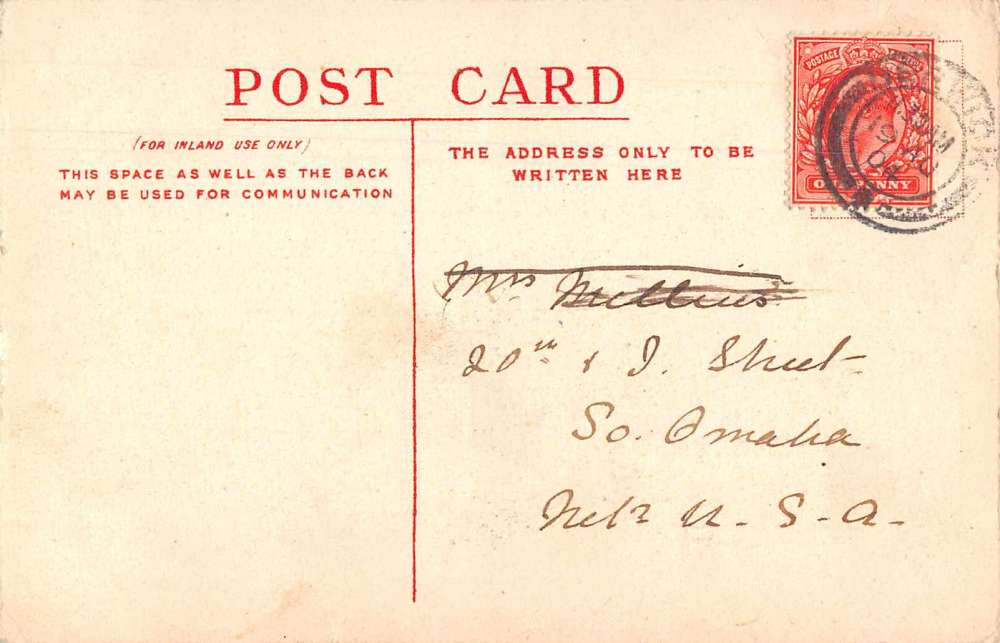 POST CARD
(FOR INLAND USE ONLY)
THIS SPACE AS WELL AS THE BACK
MAY BE USED FOR COMMUNICATION
THE ADDRESS ONLY TO BE
WRITTEN HERE
POSTAGE
ONE PENNY
AU
04
Mrs
20th & J. Street
So. Omaha
U. S. A.